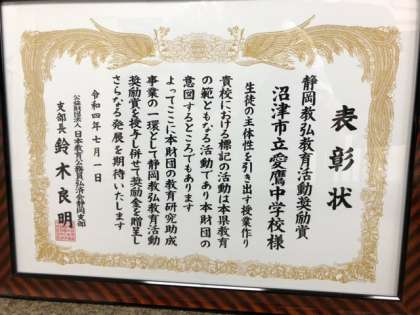 表彰状
静岡教弘教育活動奨励賞
沼津市立愛鷹中学校様
生徒の主体性を引き出す授業作り
貴校における標記の活動は本県教育
の範ともなる活動であり本財団の
意図するところでもあります
よってここに本財団の教育研究助成
事業の一環として静岡教弘教育活動
奨励賞を授与し併せて奨励金を贈呈し
さらなる発展を期待いたします
令和四年七月一日
公益財団法人 日本教育公務員弘済会静岡支部
支部長 鈴木良明